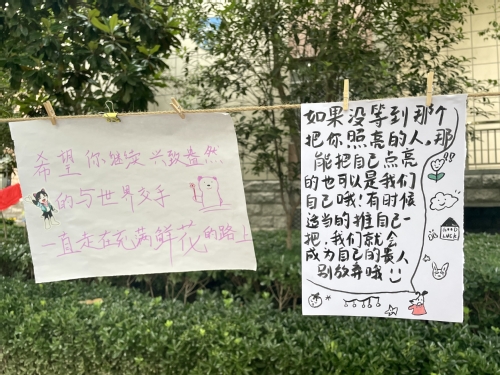 希望 你继续 兴致盎然
的与世界交手
一直走在充满鲜花的路上
如果没等到那个
把你照亮的人,那
能把自己点亮
的也可以是我们
自己哦!有时候
适当的推自己一
把,我们就会
成为自己的贵人
别放弃哦
GOOD
LUCK